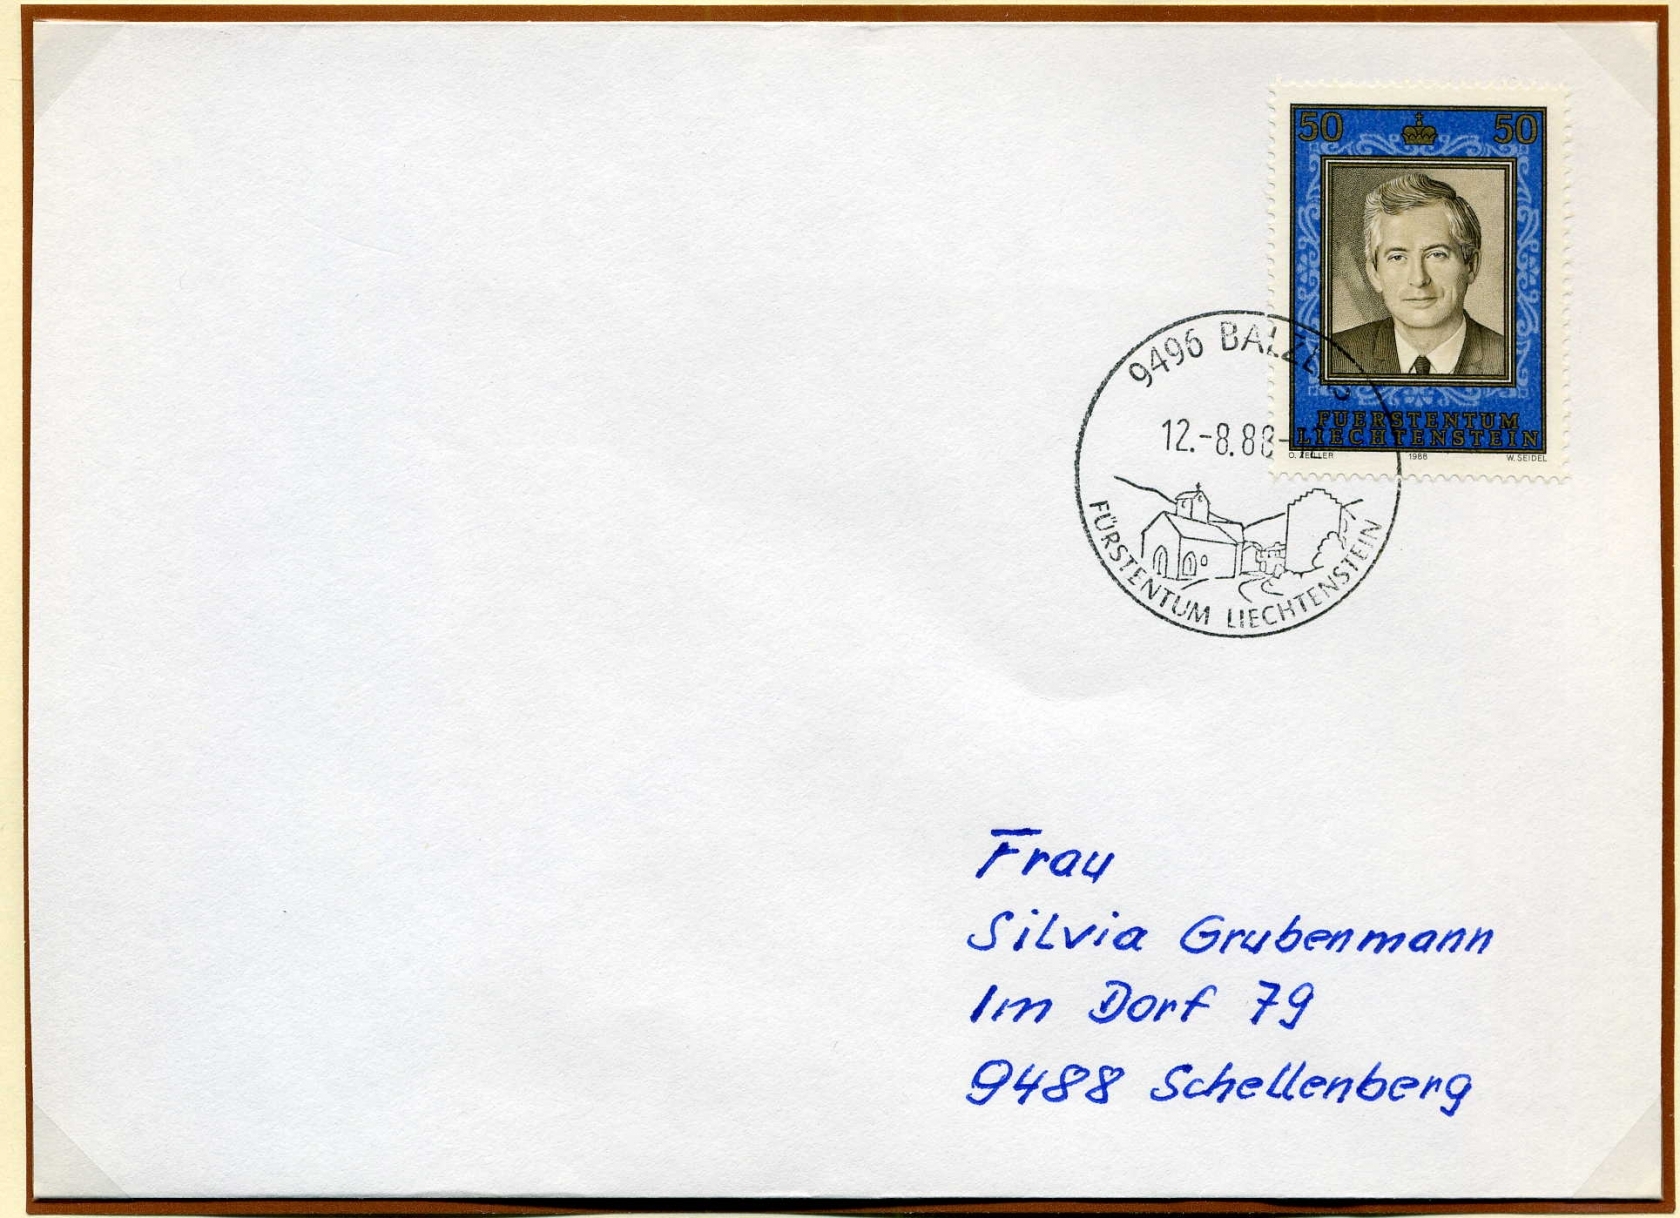 50 50
FUERSTENTUM
LIECHTENSTEIN
O. ZEILER 1988 W. SEIDEL
9496 BALZERS
12.-8.88-12
FÜRSTENTUM LIECHTENSTEIN
Frau
Silvia Grubenmann
Im Dorf 79
9488 Schellenberg